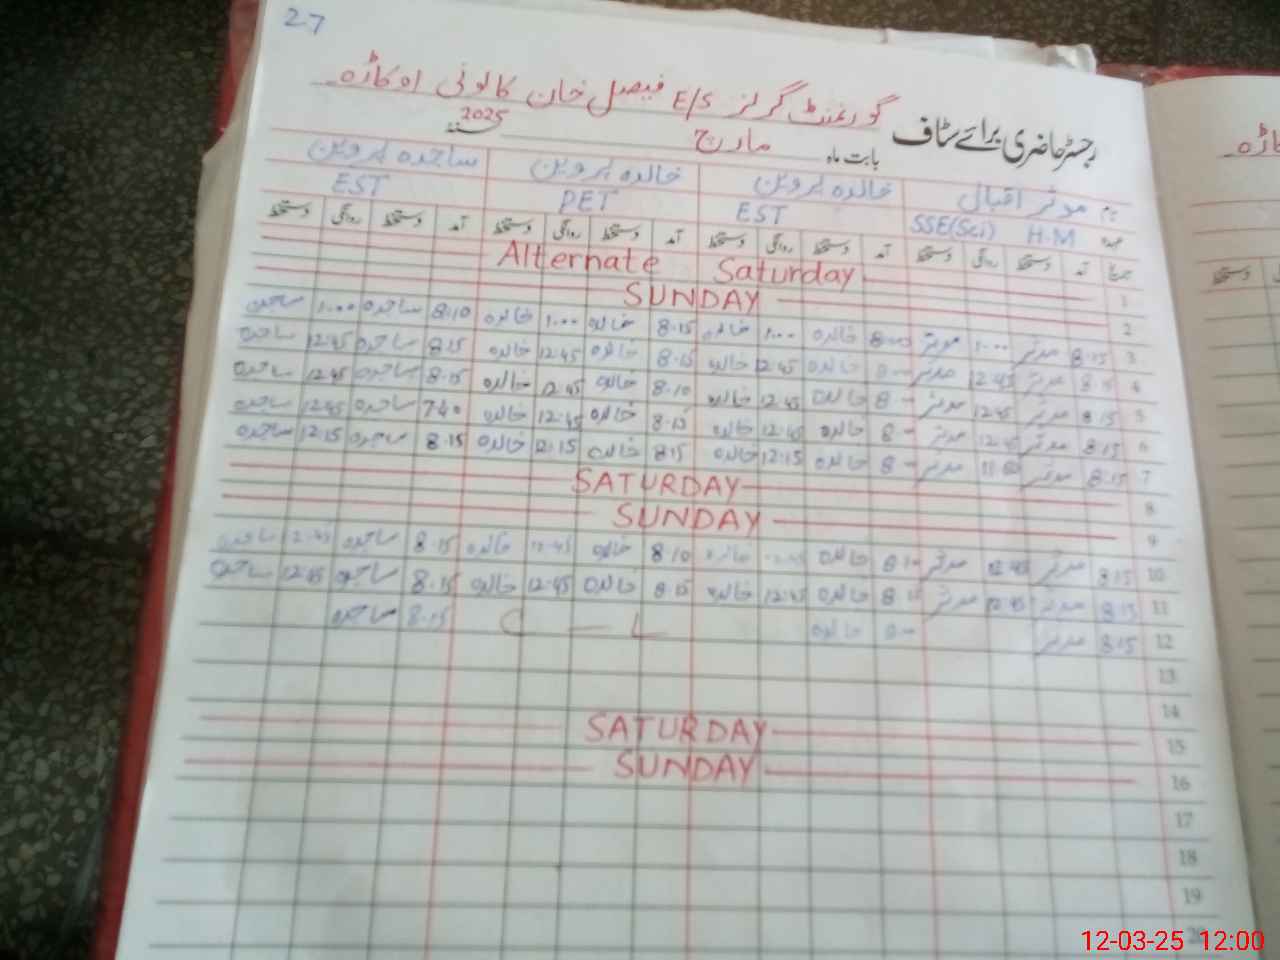 27
گورنمنٹ گرلز E/S فیصل خان کالونی اوکاڑہ
رجسٹر حاضری برائے سٹاف بابت ماہ مارچ سنہ 2025
نام موثر اقبال خالدہ پروین خالدہ پروین ساجدہ پروین
عہدہ H.M SSE(Sci) EST PET EST
تاریخ آمد دستخط روانگی دستخط آمد دستخط روانگی دستخط آمد دستخط روانگی دستخط آمد دستخط روانگی دستخط
1 Alternate Saturday
2 SUNDAY
3 8.15 موثر 1.00 موثر 8.00 خالدہ 1.00 خالدہ 8.15 خالدہ 1.00 خالدہ 8.10 ساجدہ 1.00 ساجدہ
4 8.15 موثر 12.45 موثر 8.00 خالدہ 12.45 خالدہ 8.15 خالدہ 12.45 خالدہ 8.15 ساجدہ 12.45 ساجدہ
5 8.15 موثر 12.45 موثر 8.00 خالدہ 12.45 خالدہ 8.10 خالدہ 12.45 خالدہ 8.15 ساجدہ 12.45 ساجدہ
6 8.15 موثر 12.45 موثر 8.00 خالدہ 12.45 خالدہ 8.15 خالدہ 12.45 خالدہ 7.40 ساجدہ 12.45 ساجدہ
7 8.15 موثر موثر 8.00 خالدہ 12.15 خالدہ 8.15 خالدہ 12.15 خالدہ 8.15 ساجدہ 12.15 ساجدہ
8 SATURDAY
9 SUNDAY
10 8.15 موثر 12.45 موثر خالدہ 12.45 خالدہ 8.10 خالدہ 12.45 خالدہ 8.15 ساجدہ 12.45 ساجدہ
11 8.15 موثر 12.45 موثر خالدہ 12.45 خالدہ 8.15 خالدہ 12.45 خالدہ 8.15 ساجدہ 12.45 ساجدہ
12 8.15 موثر خالدہ C — L 8.15 ساجدہ
13
14
15 SATURDAY
16 SUNDAY
17
18
19
20
12-03-25 12:00